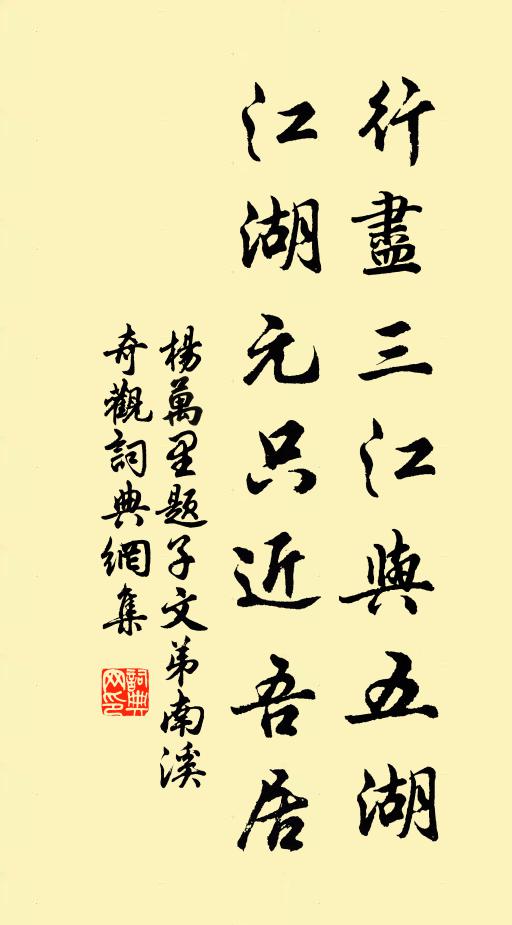 行盡三江與五湖
江湖元只近吾居
楊萬里題子文弟南溪
奇觀詞典網集
詞典网印